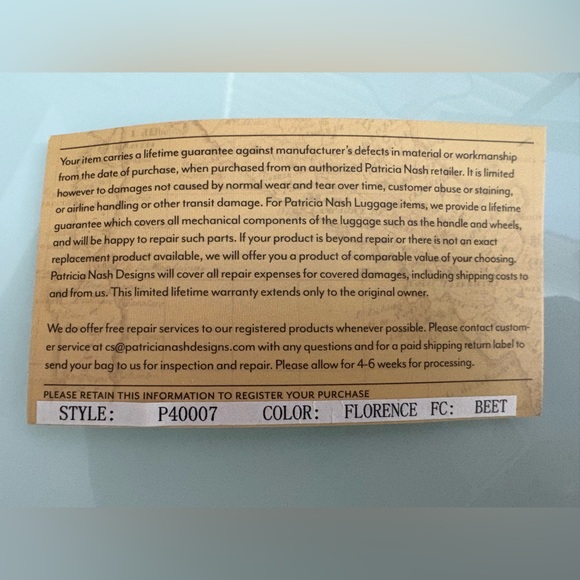 Your item carries a lifetime guarantee against manufacturer's defects in material or workmanship
from the date of purchase, when purchased from an authorized Patricia Nash retailer. It is limited
however to damages not caused by normal wear and tear over time, customer abuse or staining,
or airline handling or other transit damage. For Patricia Nash Luggage items, we provide a lifetime
guarantee which covers all mechanical components of the luggage such as the handle and wheels,
and will be happy to repair such parts. If your product is beyond repair or there is not an exact
replacement product available, we will offer you a product of comparable value of your choosing.
Patricia Nash Designs will cover all repair expenses for covered damages, including shipping costs to
and from us. This limited lifetime warranty extends only to the original owner.
We do offer free repair services to our registered products whenever possible. Please contact custom-
er service at cs@patricianashdesigns.com with any questions and for a paid shipping return label to
send your bag to us for inspection and repair. Please allow for 4-6 weeks for processing.
PLEASE RETAIN THIS INFORMATION TO REGISTER YOUR PURCHASE
STYLE: P40007 COLOR: FLORENCE FC: BEET